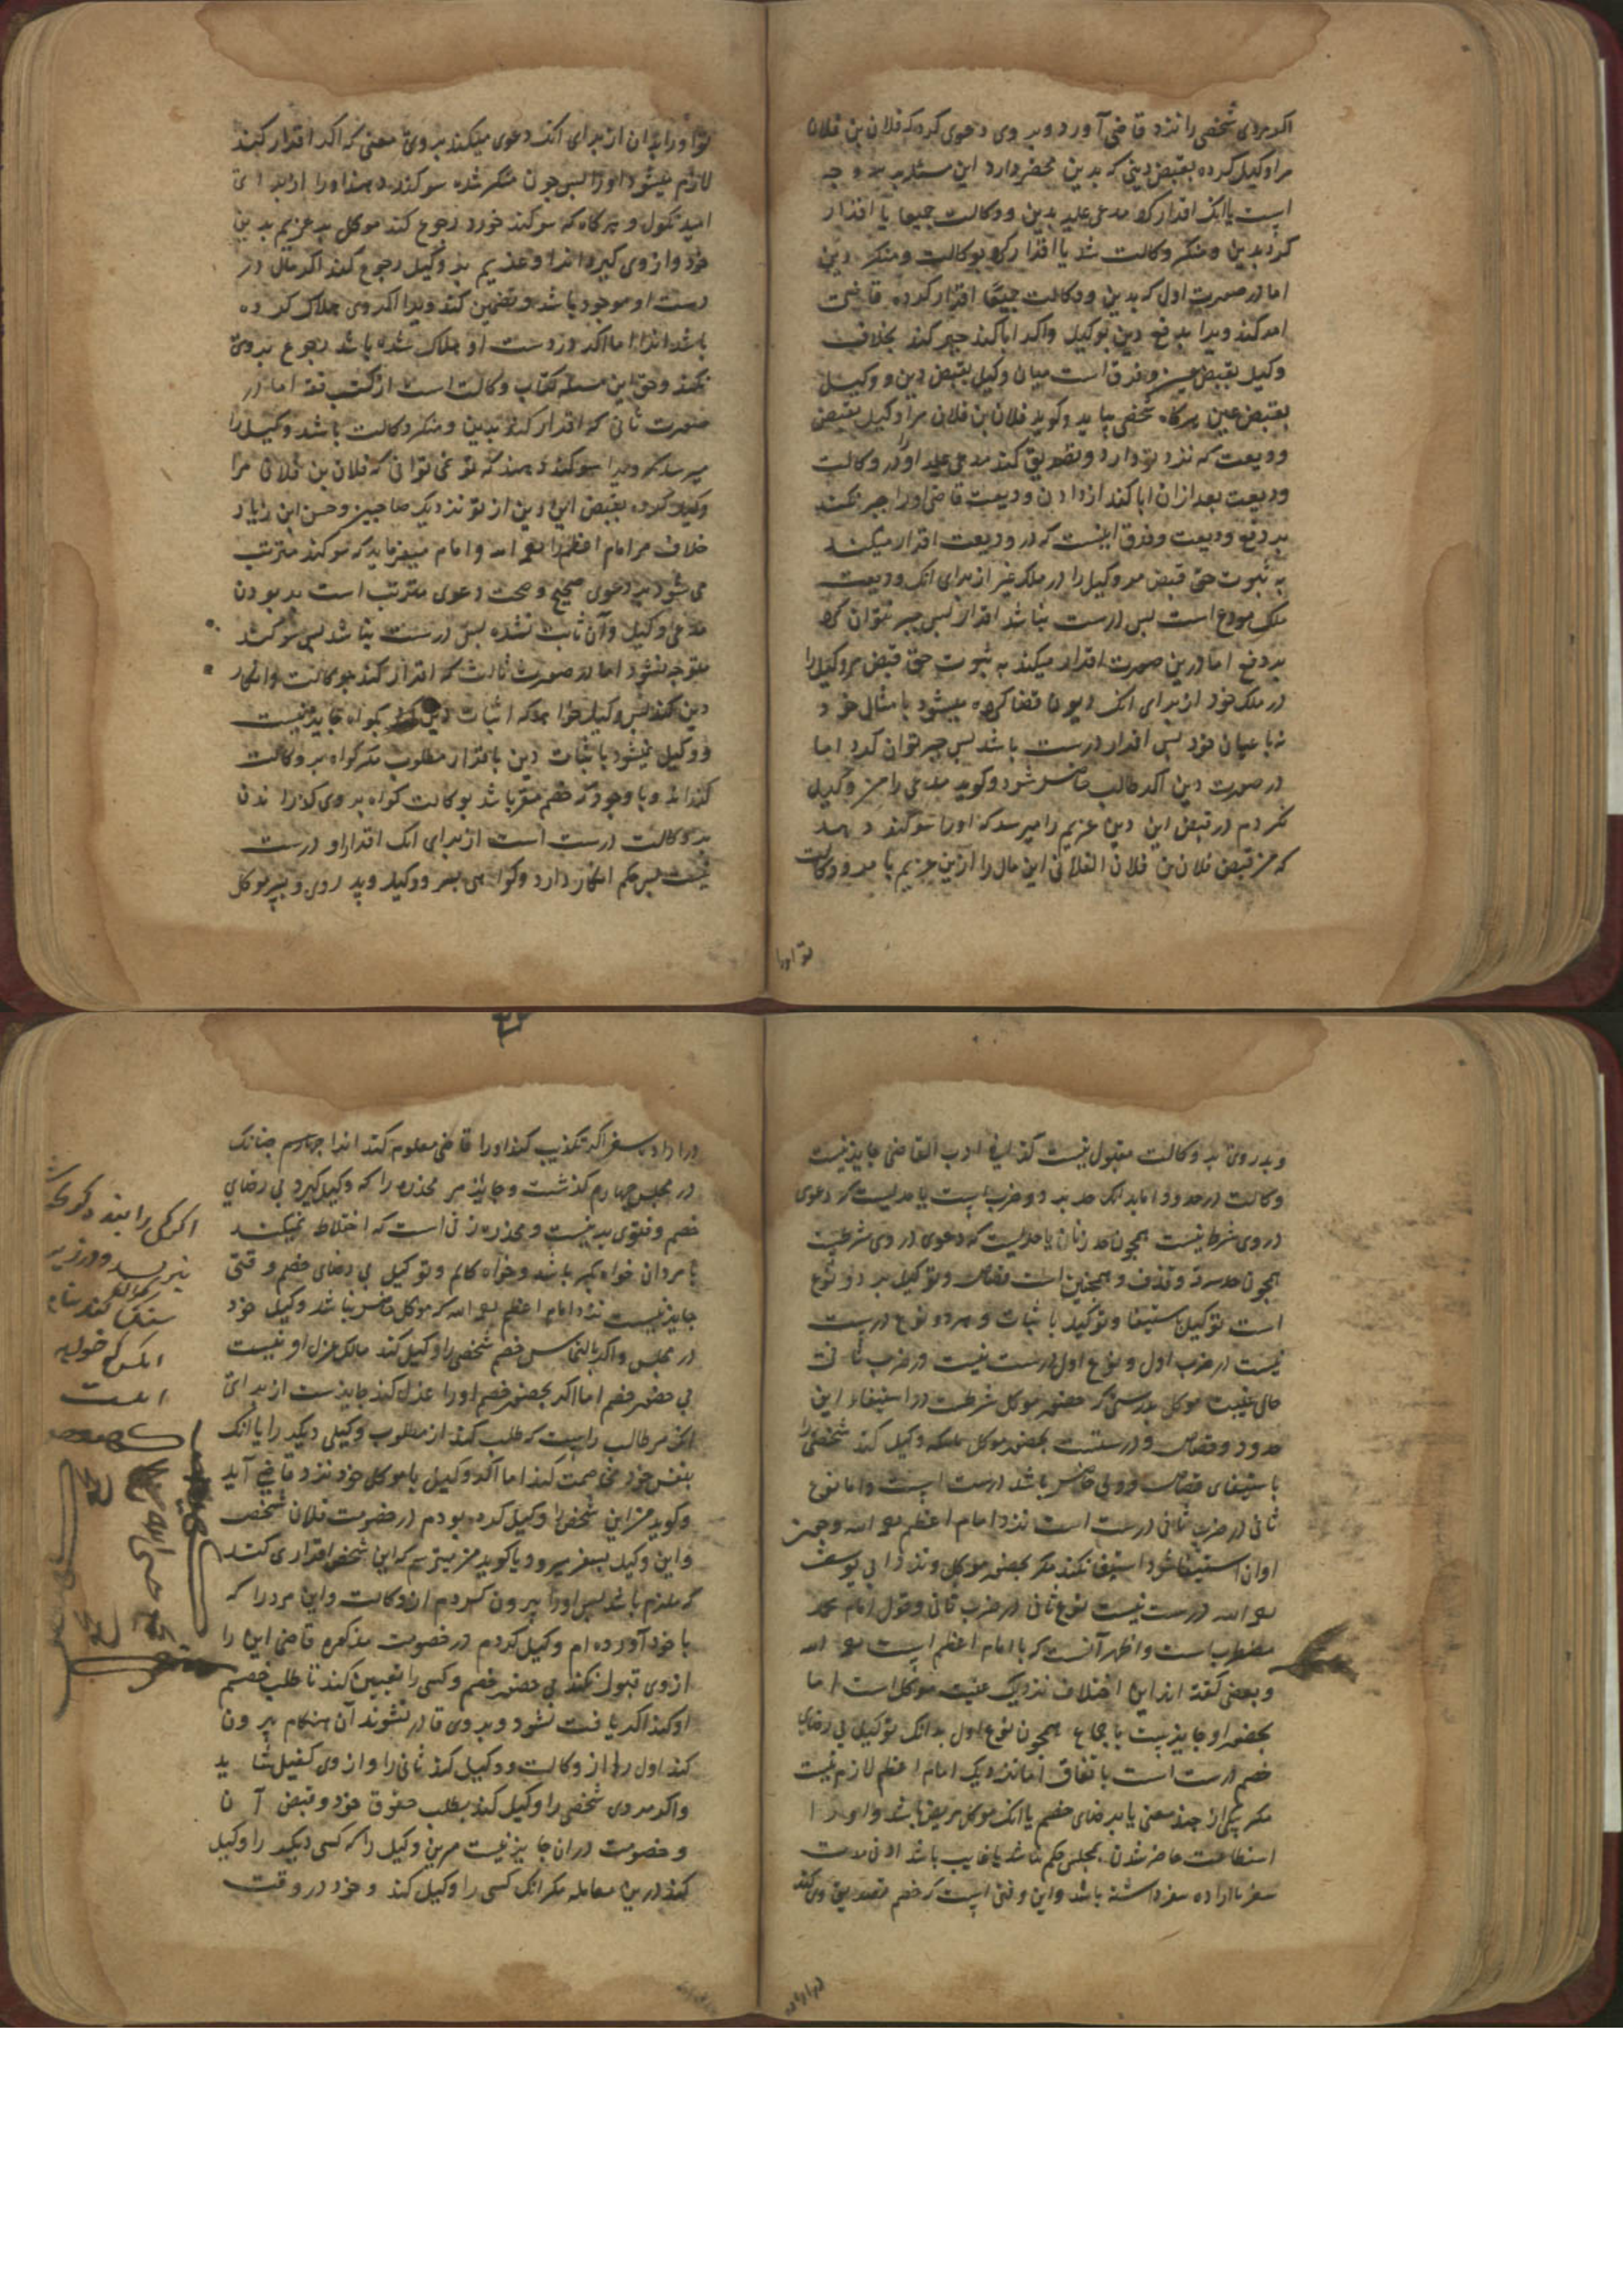 اکر مردی شخصی را نزد قاضی آورد و بر وی دعوی کرد که فلان بن فلان
مرا وکیل کرده بقبض دینی که بدین محضر دارد این مسئله بر سه وجه
است یا انک اقرار کرد مدعی علیه بدین و وکالت جمیعا یا اقرار
کرد بدین و منکر وکالت شد یا اقرار کرد بوکالت و منکر دین
اما در صورت اول که بدین و وکالت جمیعا اقرار کرده قاضی
امر کند ویرا بدفع دین بوکیل و اکر ابا کند جبر کند بخلاف
وکیل بقبض عین و فرق است میان وکیل بقبض دین و وکیل
بقبض عین هرکاه شخصی بیاید و کوید فلان بن فلان مرا وکیل بقبض
ودیعت که نزد تو دارد و تصدیق کند مدعی علیه او را در وکالت
ودیعت بعد ازان ابا کند از دادن ودیعت قاضی او را جبر نکند
بر دفع ودیعت و فرق اینست که در ودیعت اقرار میکند
به ثبوت حق قبض مر وکیل را در ملک غیر از برای انک ودیعت
ملک مودع است پس درست نباشد اقرار پس جبر نتوان کرد
بر دفع اما درین صورت اقرار میکند به ثبوت حق قبض مر وکیل را
در ملک خود از برای انک دیون قضا کرده میشود بامثال خود
نه باعیان خود پس اقرار درست باشد پس جبر توان کرد اما
در صورت دین اکر طالب حاضر شود و کوید مدعی را من وکیل
نکردم در قبض این دین غریم را میرسد که او را سوکند دهد
که من قبض فلان بن فلان الفلانی این مال را ازین غریم بامر و وکالت
تو اورا
تو او را بدان از برای انک دعوی میکند بر وی معنی که اکر اقرار کند
لازم میشود او را پس چون منکر شده سوکند دهد او را از برای
امید نکول و هرکاه که سوکند خورد رجوع کند موکل بر غریم بدین
خود و از وی کیرد انرا و غریم بر وکیل رجوع کند اکر مال در
دست او موجود باشد و تضمین کند ویرا اکر وی هلاک کرده
باشد انرا اما اکر در دست او هلاک شده باشد رجوع بر وی
نکند و حق این مسئله کتاب وکالت است از کتب فقه اما در
صورت ثانی که اقرار کند بدین و منکر وکالت باشد وکیل را
میرسد که ویرا سوکند دهد که تو نمی دانی که فلان بن فلان مرا
وکیل کرده بقبض این دین از تو نزدیک صاحبین و حسن ابن زیاد
خلاف مر امام اعظم را رحمه الله و امام میفرماید که سوکند مترتب
می شود بر دعوی صحیح و صحت دعوی مترتب است بر بودن
مدعی وکیل و آن ثابت نشده پس درست نباشد پس سوکند
متوجه نشود اما در صورت ثالث که اقرار کند بوکالت و انکار
دین کند پس وکیل خواهد که اثبات دین کند بکواه جایز نیست
و وکیل نمیشود باثبات دین باقرار مطلوب مکر کواه بر وکالت
کذراند و با وجود که خصم مقر باشد بوکالت کواه بر وی کذراندن
بر وکالت درست است از برای انک اقرار او درست
نیست پس حکم انکار دارد و کواهی پسر وکیل و پدر وی و پسر موکل
و پدر وی بر وکالت مقبول نیست کذا فی ادب القاضی جایز نیست
وکالت در حدود اما بدانک حد بر دو ضرب است یا حدیست که دعوی
در وی شرط نیست همچون حد زنا یا حدیست که دعوی در وی شرطست
همچون حد سرقه و قذف و همچنین است قصاص و توکیل بر دو نوع
است توکیل باستیفا و توکیل باثبات و هر دو نوع درست
نیست در ضرب اول و نوع اول درست نیست در ضرب ثانی
حال غیبت موکل بدرستی که حضور موکل شرطست در استیفاء این
حدود و قصاص و درستست بحضور موکل هرکاه وکیل کند شخصی را
باستیفای قصاص و ولی حاضر باشد درست است و اما نوع
ثانی در ضرب ثانی درست است نزد امام اعظم رحمه الله و چون
اوان استیفا شود استیفا نکند مکر بحضور موکل و نزد ابی یوسف
رحمه الله درست نیست نوع ثانی در ضرب ثانی و قول امام محمد
مضطرب است و اظهر آنست که با امام اعظم است رحمه الله
و بعضی کفته اند این اختلاف نزدیک غیبت موکل است اما
بحضور او جایز است باجماع همچون نوع اول بدانک توکیل بی رضای
خصم درست است باتفاق اما نزدیک امام اعظم لازم نیست
مکر بیکی از چند معنی یا برضای خصم یا انک موکل مریض باشد و او را
استطاعت حاضر شدن بمجلس حکم نباشد یا غایب باشد ادنی مدت
سفر یا اراده سفر داشته باشد و این وقتی است که خصم تصدیق وی کند
در اراده
در اراده سفر اکر تکذیب کند او را قاضی معلوم کند انرا چهارم چنانک
در مجلس چهارم کذشت و جایز است مر مخدره را که وکیل کیرد بی رضای
خصم و فتوی بدینست و مخدره زنی است که اختلاط نمیکند
با مردان خواه بکر باشد و خواه کالم و توکیل بی رضای خصم وقتی
جایز نیست نزد امام اعظم رحمه الله که موکل حاضر نباشد وکیل خود
در مجلس و اکر بالتماس خصم شخصی را وکیل کند مالک عزل او نیست
بی حضور خصم اما اکر بحضور خصم او را عزل کند جایزست از برای
انک مر طالب راست که طلب کند از مطلوب وکیلی دیکر را یا انک
بنفس خود مخاصمت کند اما اکر وکیل با موکل خود نزد قاضی آید
و کوید من این شخص را وکیل کرده بودم در خصومت فلان شخص
و این وکیل بسفر میرود یا کوید من میترسم که این شخص اقراری کند
که ملزم باشد پس او را بیرون کردم از وکالت و این مرد را که
با خود آورده ام وکیل کردم در خصومت مذکوره قاضی این را
از وی قبول نکند بی حضور خصم و کسی را تعیین کند تا طلب خصم
او کند اکر یافت نشود و بر وی قادر نشوند آن هنکام بیرون
کند اول را از وکالت و وکیل کند ثانی را و از وی کفیل ستاند
و اکر مردی شخصی را وکیل کند بطلب حقوق خود و قبض آن
و خصومت دران جایز نیست مر این وکیل را که کسی دیکر را وکیل
کند درین معامله مکر انک کسی را وکیل کند و خود در وقت